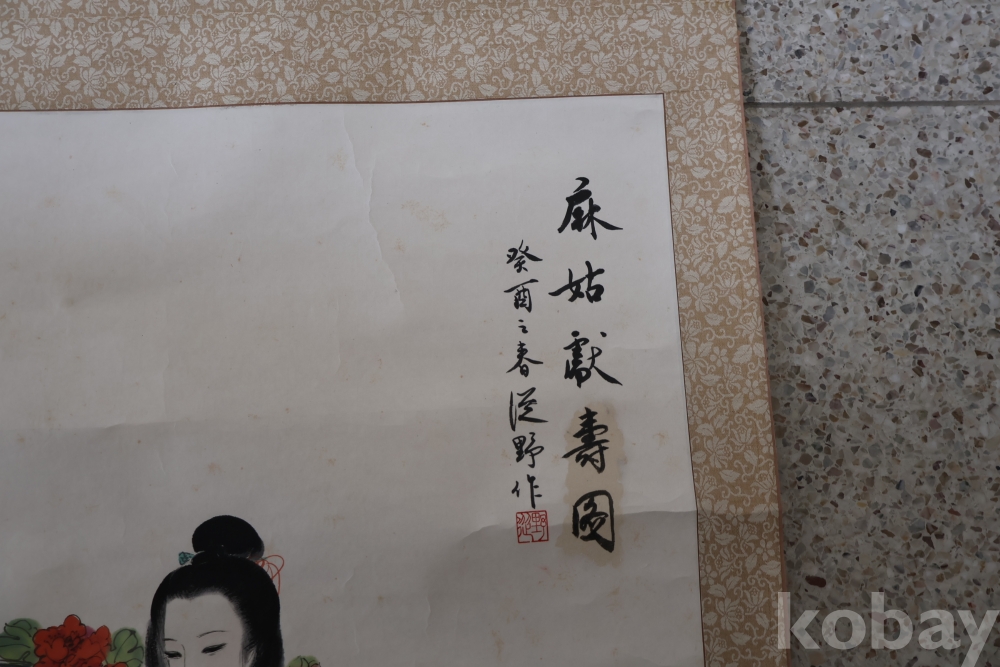 麻姑獻壽圖
癸酉之春從野作
kobay